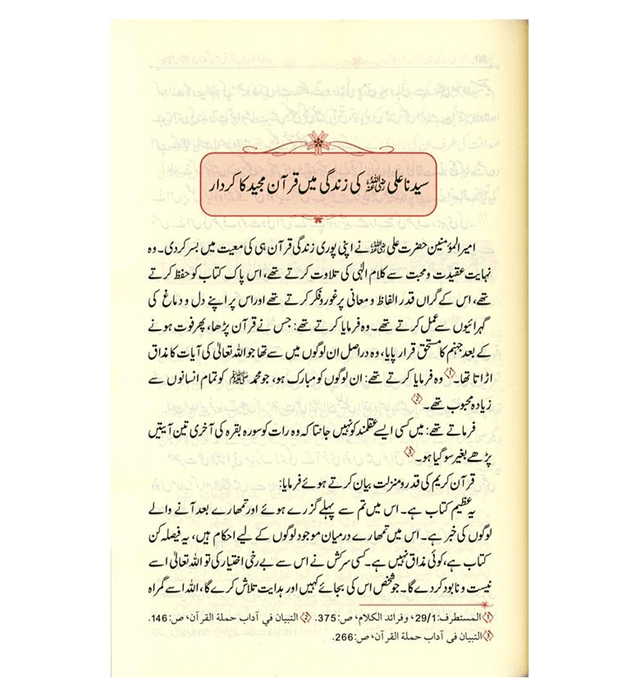 سیدنا علی رضی اللہ عنہ کی زندگی میں قرآن مجید کا کردار
امیر المؤمنین حضرت علی رضی اللہ عنہ نے اپنی پوری زندگی قرآن ہی کی معیت میں بسر کر دی۔ وہ
نہایت عقیدت و محبت سے کلام الٰہی کی تلاوت کرتے تھے، اس پاک کتاب کو حفظ کرتے
تھے، اس کے گراں قدر الفاظ و معانی پر غور و فکر کرتے تھے اور اس پر اپنے دل و دماغ کی
گہرائیوں سے عمل کرتے تھے۔ وہ فرمایا کرتے تھے: جس نے قرآن پڑھا، پھر فوت ہونے
کے بعد جہنم کا مستحق قرار پایا، وہ دراصل ان لوگوں میں سے تھا جو اللہ تعالیٰ کی آیات کا مذاق
اڑاتا تھا۔ 1 وہ فرمایا کرتے تھے: ان لوگوں کو مبارک ہو، جو محمد ﷺ کو تمام انسانوں سے
زیادہ محبوب تھے۔ 2
فرماتے تھے: میں کسی ایسے عقلمند کو نہیں جانتا کہ وہ رات کو سورہ بقرہ کی آخری تین آیتیں
پڑھے بغیر سو گیا ہو۔ 3
قرآن کریم کی قدر و منزلت بیان کرتے ہوئے فرمایا:
یہ عظیم کتاب ہے۔ اس میں تم سے پہلے گزرے ہوئے اور تمھارے بعد آنے والے
لوگوں کی خبر ہے۔ اس میں تمھارے درمیان موجود لوگوں کے لیے احکام ہیں، یہ فیصلہ کن
کتاب ہے، کوئی مذاق نہیں ہے۔ کسی سرکش نے اس سے بے رخی اختیار کی تو اللہ تعالیٰ اسے
نیست و نابود کر دے گا۔ جو شخص اس کی بجائے کہیں اور ہدایت تلاش کرے گا، اللہ اسے گمراہ
1 المستطرف: 29/1، وفرائد الكلام، ص: 375. 2 التبيان في آداب حملة القرآن، ص: 146.
3 التبيان في آداب حملة القرآن، ص: 266.